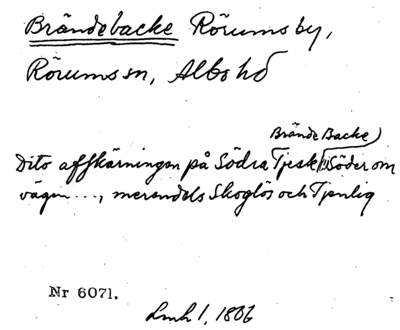 Brändebacke Rörums by,
Rörums sn, Albo hd
Brände Backe)
Dito affskärningen på Södra Tjesk Söder om
vägen ..., merendels Skoglös och Tjenlig
Nr 6071.
Lmh 1, 1806